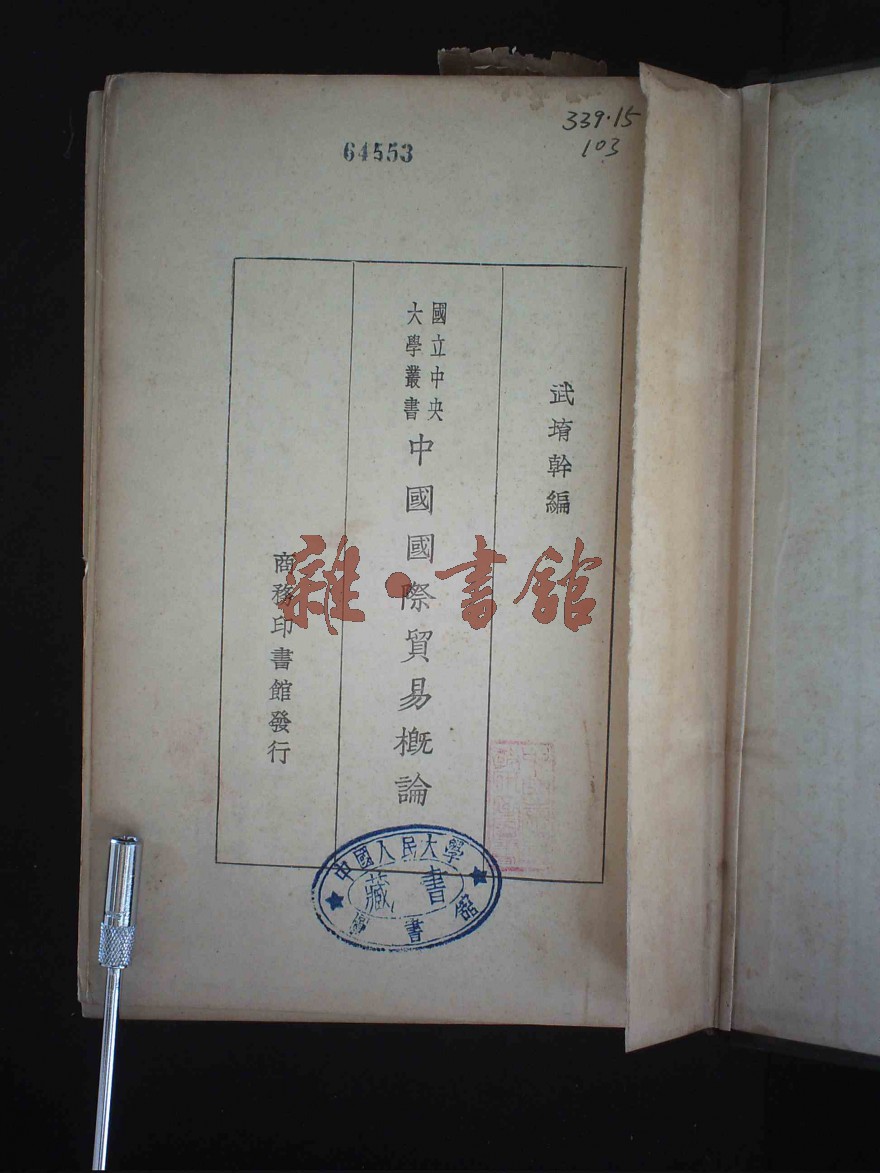 64553
339.15
103
武堉幹編
國立中央
大學叢書
中國國際貿易概論
商務印書館發行
雜·書館
中國人民大學
藏書
書館